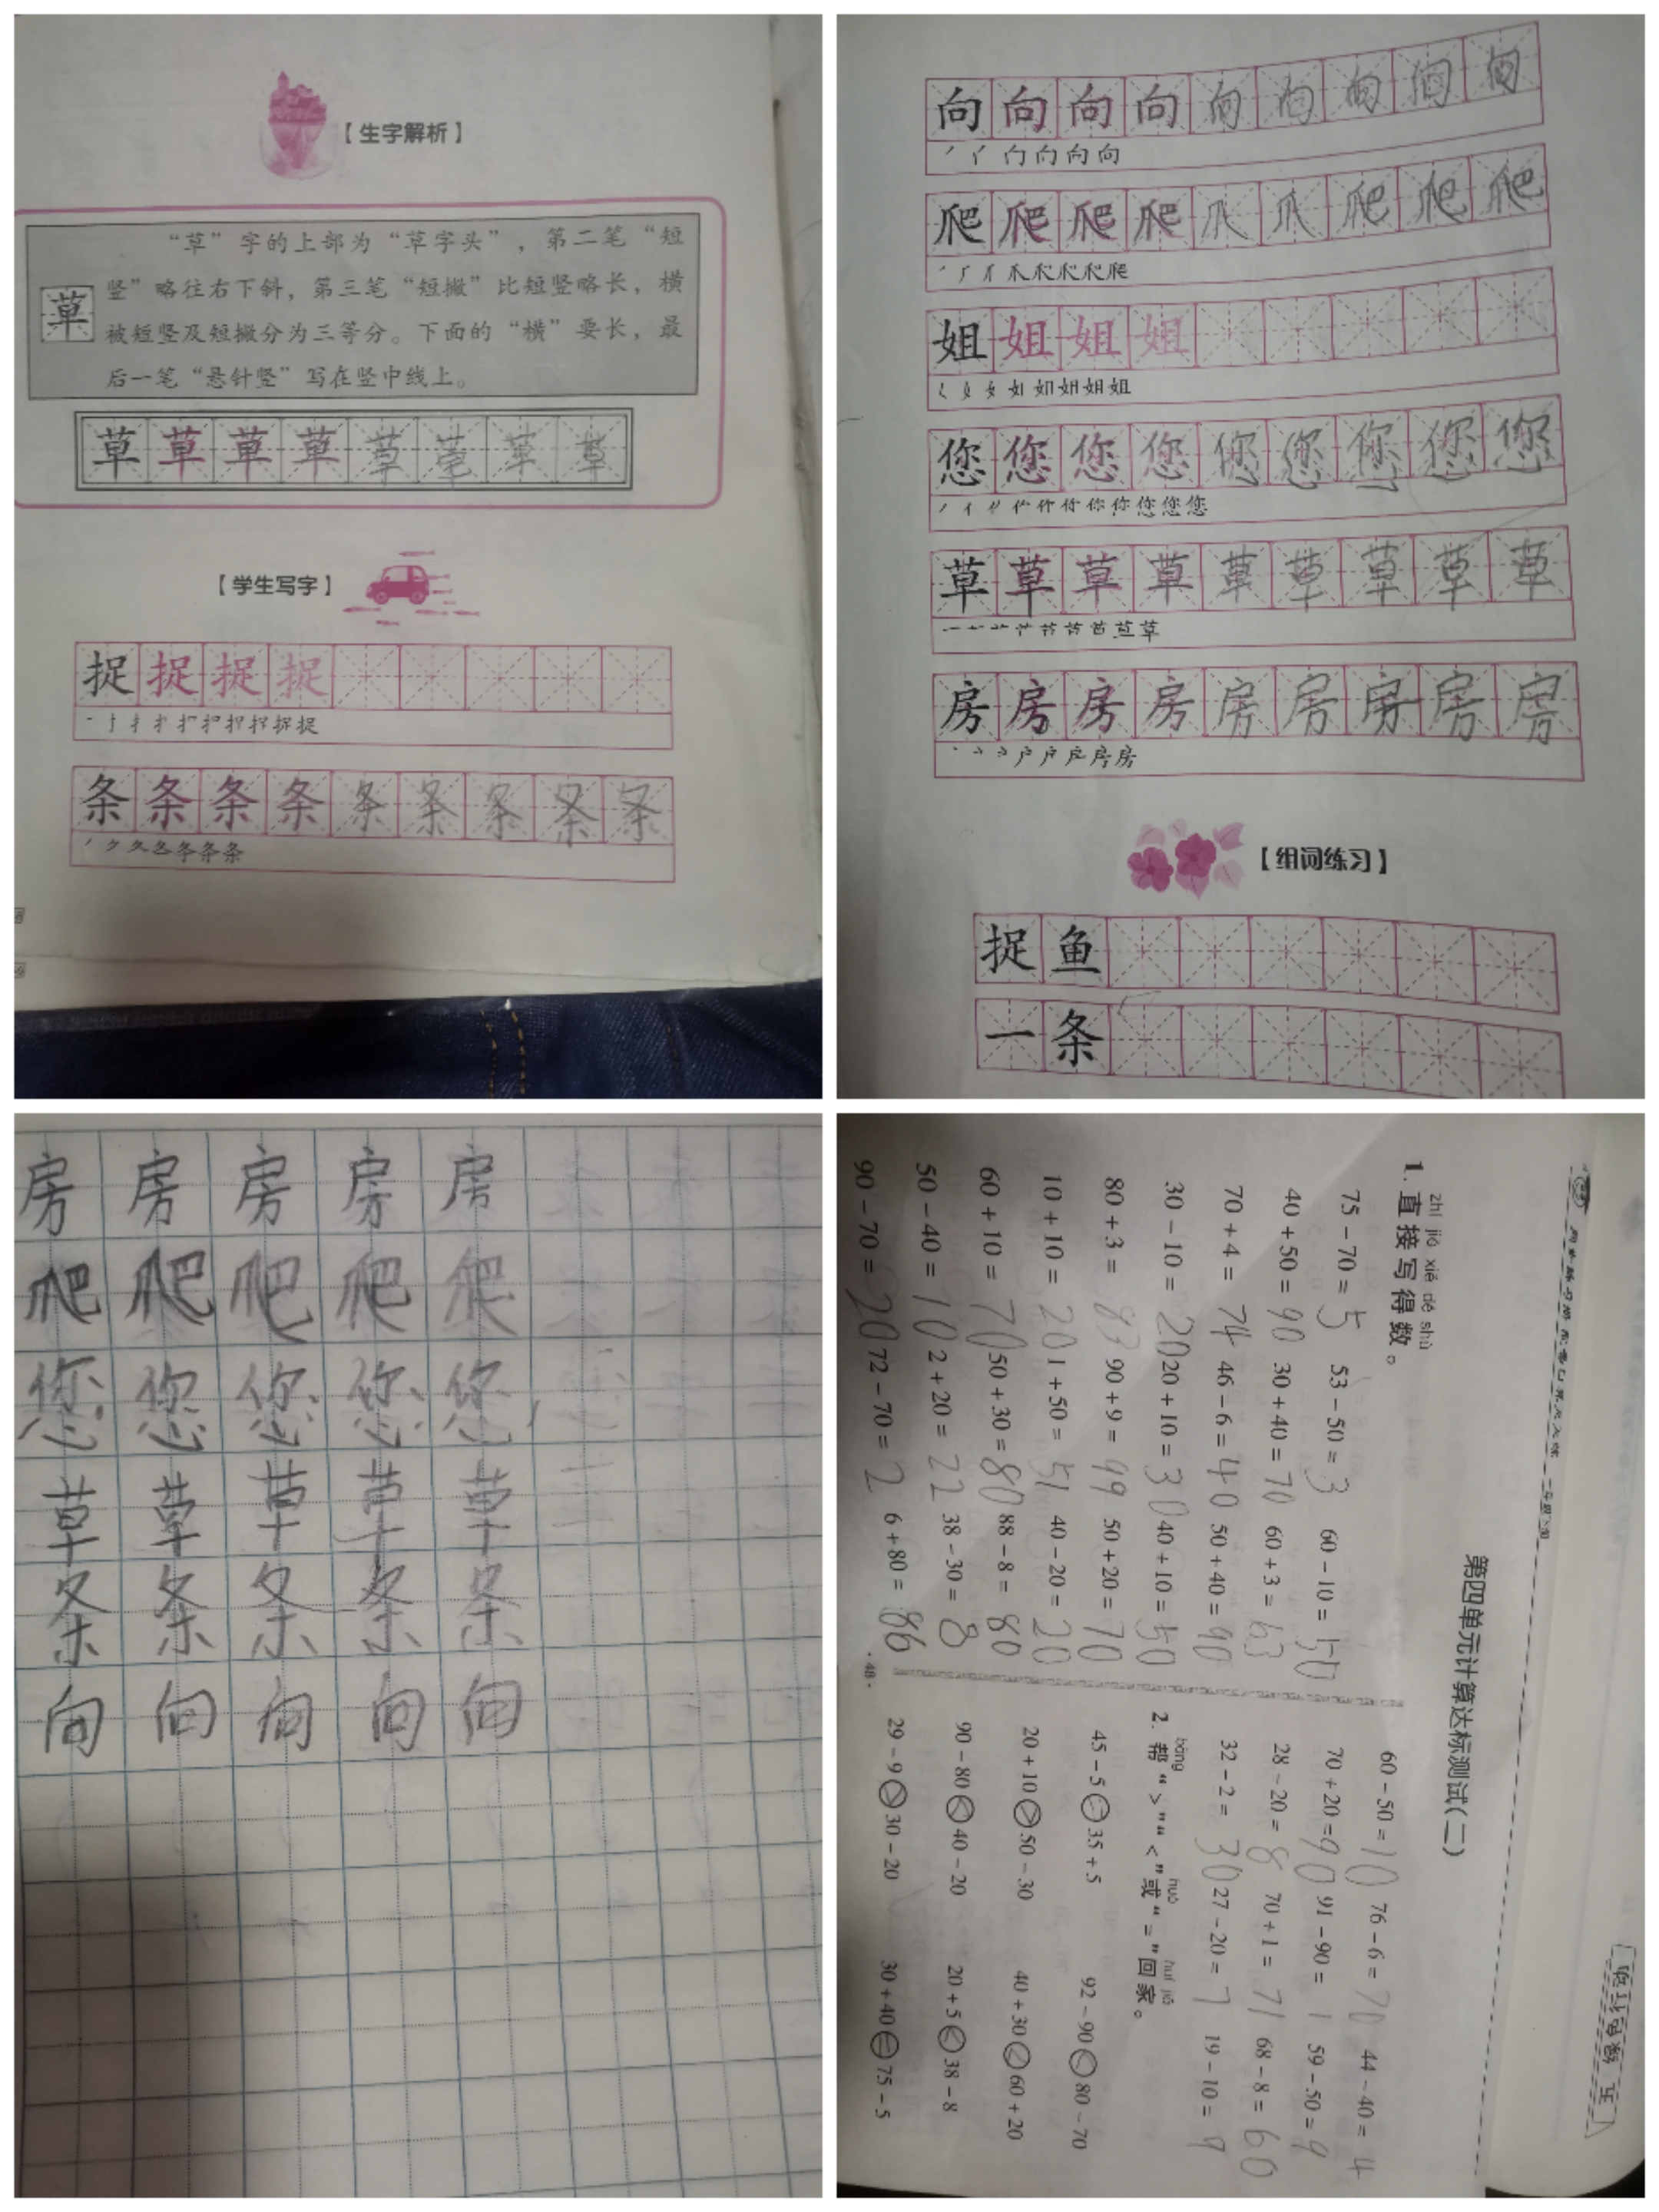 【生字解析】
“草”字的上部为“草字头”，第二笔“短
竖”略往右下斜，第三笔“短撇”比短竖略长，横
被短竖及短撇分为三等分。下面的“横”要长，最
后一笔“悬针竖”写在竖中线上。
草
草草草草草草草草
【学生写字】
捉捉捉捉
条条条条条条条条条
向向向向向向向向向
爬爬爬爬爪爪爬爬爬
姐姐姐姐
您您您您您您您您您
草草草草草草草草草
房房房房房房房房房
【组词练习】
捉鱼
一条
房房房房房
爬爬爬爬爬
您您您您您
草草草草草
条条条条条
向向向向向
第四单元计算达标测试(二)
zhí jiē xiě dé shù
1. 直接写得数。
75－70＝5 53－50＝3 60－10＝50
40＋50＝90 30＋40＝70 60＋3＝63
70＋4＝74 46－6＝40 50＋40＝90
30－10＝20 20＋10＝30 40＋10＝50
80＋3＝83 90＋9＝99 50＋20＝70
10＋10＝20 1＋50＝51 40－20＝20
60＋10＝70 50＋30＝80 88－8＝80
50－40＝10 2＋20＝22 38－30＝8
90－70＝20 72－70＝2 6＋80＝86
·48·
60－50＝10 76－6＝70 44－40＝4
70＋20＝90 91－90＝1 59－50＝9
28－20＝8 70＋1＝71 68－8＝60
32－2＝30 27－20＝7 19－10＝9
bāng huò huí jiā
2. 帮“＞”“＜”或“＝”回家。
45－5＝35＋5 92－90＜80－70
20＋10＞50－30 40＋30＜60＋20
90－80＜40－20 20＋5＜38－8
29－9＞30－20 30＋40＝75－5